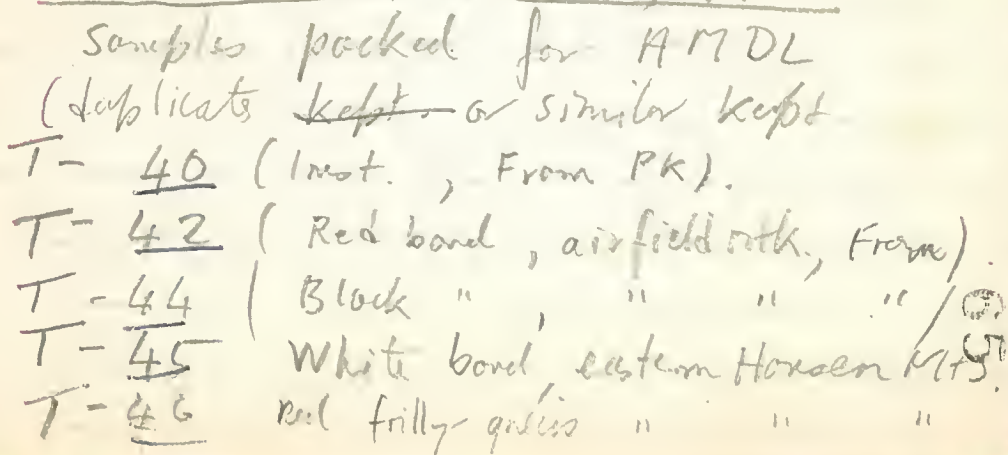 Samples packed for AMDL
(duplicate kept or similar kept
T- 40 ( Inst. , From PK).
T- 42 ( Red band , airfield ntk., From).
T- 44 ( Black " , " " "
T- 45 White band, eastern Hansen Mts.
T- 46 Red frilly gneiss " " "
65